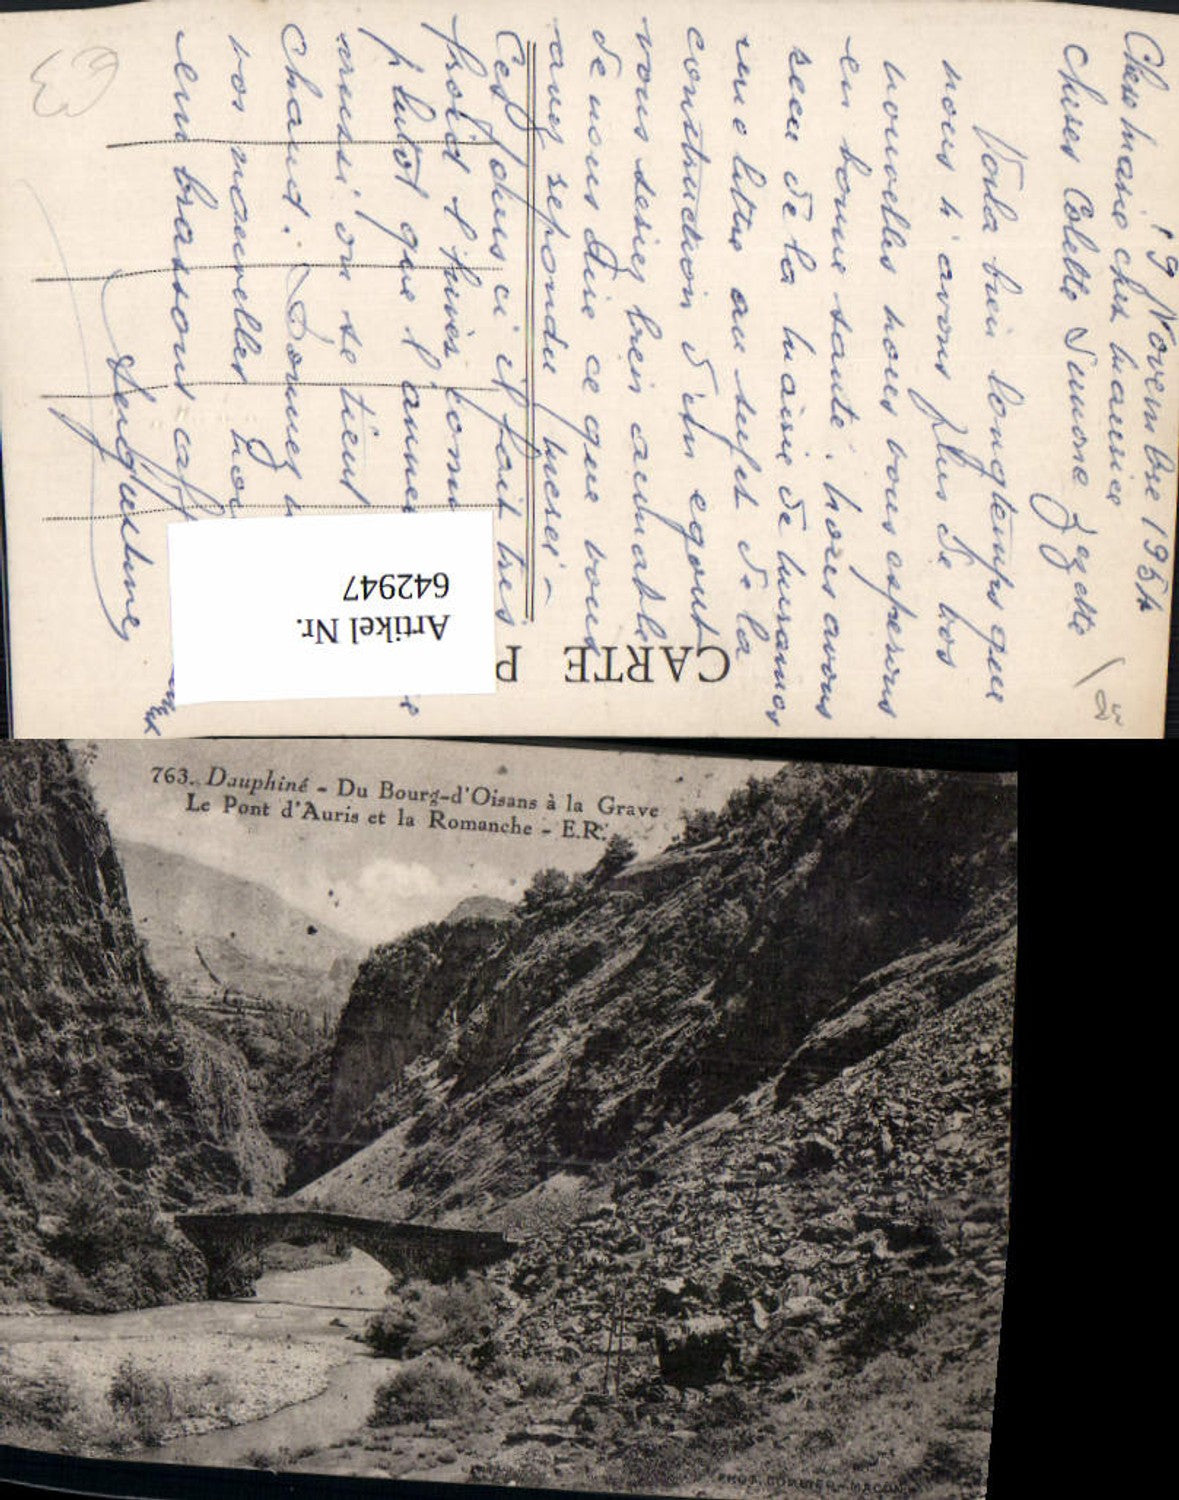 19 Novembre 1954
Cher Mario cher Maurice
Chères Colette Simone Zezette
Voila bien longtemps que
nous n'avons plus de vos
nouvelles nous vous esperons
en bonne santé. nous avons
recu de la mairie de
une lettre au sujet de la
contruction d'un egout
vous seriez bien aimable
de nous dire ce que vous
avez repondu merci -
Ces jours ci il fait tres
froid l'hiver
plutot que l'année
aussi on se tient
chaud. Donnez n
vos nouvelles nou
embrassons aff
CARTE P
Artikel Nr.
642947
763. Dauphiné - Du Bourg-d'Oisans à la Grave
Le Pont d'Auris et la Romanche - E.R.
PHOT. COMBIER - MACON